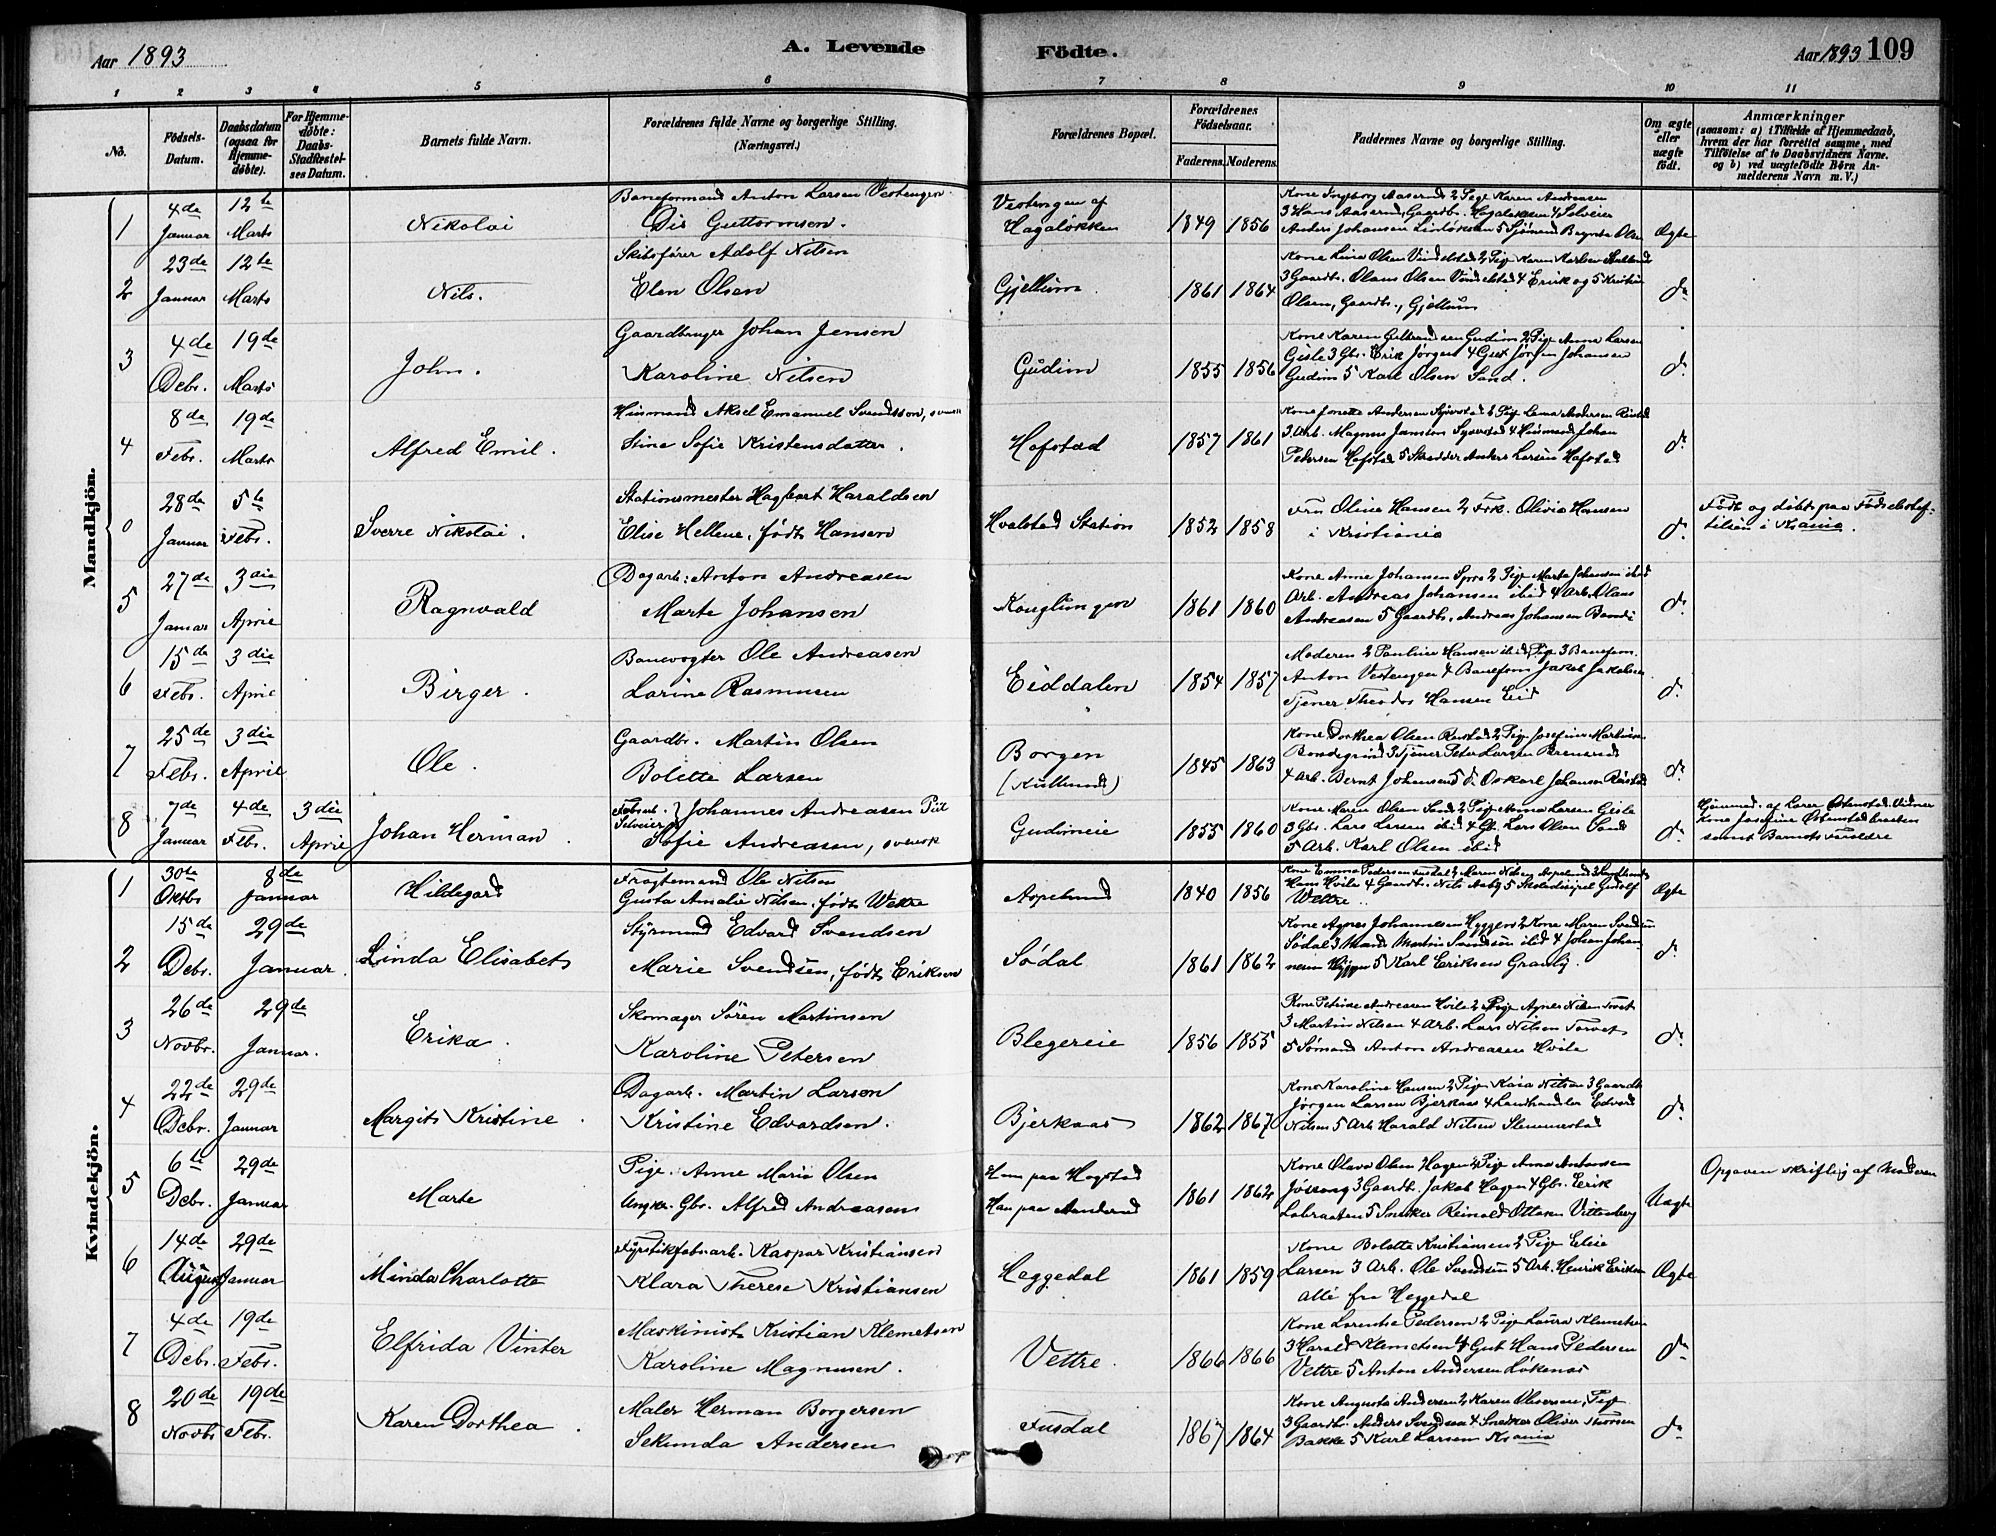 Aar 1893
A. Levende
Födte.
Aar 1893
109
1 2 3 4 5 6 7 8 9 10 11
No.
Födsels-Datum.
Daabsdatum (ogsaa for Hjemme-döbte).
For Hjemme-döbte: Daabs-Stadfæstel-ses Datum.
Barnets fulde Navn.
Forældrenes fulde Navne og borgerlige Stilling. (Næringsvei.)
Forældrenes Bopæl.
Forældrenes Födselsaar.
Faderens. Moderens.
Faddernes Navne og borgerlige Stilling.
Om ægte eller uægte födt.
Anmærkninger
(saasom: a) i Tilfælde af Hjemmedaab, hvem der har forrettet samme, med Tilföielse af to Daabsvidners Navne. og b) ved uægtefödte Börn An-melderens Navn m. V.)
Mandkjön.
1
4de Januar
12te Marts
Nikolai
Baneformand Anton Larsen Vestengen
Guttormsen.
Vestengen af Hagaløkken
1849 1856
Kone Ingborg Aaserud 2 Pige Karen Andreasen
3 Hans Aaserud, Gaardbr.
Anders Johansen 5 Sjömand
Ægte
2
23de Januar
12te Marts
Nils.
Skibsfører Adolf Nilsen
Elen Olsen
Gjellum
1861 1864
Kone Lina Olsen 2 Pige Karen Karlsen
3 Gaardbr. Olaus Olsen 4 Erik og 5 Kristian
Olsen, Gaardbr., Gjellum
do
3
4de Debr.
19de Marts
John.
Gaardbruger Johan Jensen
Karoline Nilsen
Gudim
1855 1856
Kone Karen Gudim 2 Pige Anna Larsen
Gisle 3 Gbr. Erik 4 Gut Jørgen Johansen
Gudim 5 Karl Olsen Sand.
do
4
8de Febr.
19de Marts
Alfred Emil.
Husmand Aksel Emanuel Svendsson, svensk
Stina Sofie Kristensdatter.
Hofstad
1857 1861
Kone Andersen 2 Pige
3 Arb. Magnus Jansen 4 Husmand Johan
Pedersen Hofstad 5 Skrædder Anders Larsen Hofstad
do
0
28de Januar
5te Febr.
Sverre Nikolai.
Stationsmester Hagbart Haraldsen
Elise Hellene, født Hansen
Hvalstad Station
1852 1858
Fru Oline Hansen 2 Frk. Olivia Hansen
i Kristiania
do
Födt og döbt paa Fødselsstif-
telsen i Krania.
5
27de Januar
3die April
Ragnvald
Dagarb: Anton Andreasen
Marte Johansen
Konglungen
1861 1860
Kone Anne Johansen Spro 2 Pige Marte Johansen ibid
Arb. Andreas Johansen ibid 4 Arb. Olaus
Andreasen 5 Gaardbr. Andreas Johansen
do
6
15de Febr.
3die April
Birger.
Banevogter Ole Andreasen
Lorine Rasmussen
Eiddalen
1854 1857
Moderen 2 Pauline Hansen ibid, Pige 3 Baneform.
Anton Vestengen 4 Baneform Jakob Jakobsen
Tjener Theodor Hansen Eid
do
7
25de Febr.
3die April
Ole.
Gaardbr. Martin Olsen
Bolette Larsen
Borgen
1845 1863
Kone Dorthea Olsen 2 Pige Josefine
3 Tjener Peter Larsen
4 Arb. Bernt Johansen 5 do Oskar Johansen
do
8
7de Januar
4de Febr.
3die April
Johan Herman
Johannes Andreasen
Sofie Andreasen, svensk
Gudimeie
1855 1860
Kone Maren Olsen Sand 2 Pige Anna Larsen Gisle
3 Gbr. Lars Larsen ibid 4 Gbr. Lars Olsen Sand
5 Arb. Karl Olsen ibid
do
Hjemmed. af Lærer Vidner
Kone Josefine
samt Barnets Forældre
Kvindekjön.
1
30te Oktbr
8de Januar
Hildegard
Fragtemand Ole Nilsen
Gusta Amalie Nilsen, født Wettre
Aspelund
1840 1856
Kone Emma Pedersen 2 Maren Nilsen Aspelund
Hans Hvile 4 Gaardbr. Nils 5 Gudolf
Wettre.
Ægte
2
15de Debr.
29de Januar.
Linda Elisabet
Styrmand Edvard Svendsen
Marie Svendsen, født Eriksen
Sødal
1861 1862
Kone Agnes Johannesen Hyggen 2 Kone Maren Svendsen
Sødal 3 Mand Martin Svendsen ibid 4 Johan Johan-
nesen Hyggen 5 Karl Eriksen Granli.
do
3
26de Novbr.
29de Januar.
Erika.
Skomager Søren Martinsen
Karoline Petersen
Blegereie
1856 1855
Kone Petrine Andreasen Hvile 2 Pige Agnes Nilsen Torvet
3 Martin Nilsen 4 Arb. Lars Nilsen Torvet
5 Sømand Anton Andreasen Hvile
do
4
22de Debr.
29de Januar
Margit Kristine.
Dagarb. Martin Larsen
Kristine Edvardsen.
Bjerkaas
1862 1867
Kone Karoline Hansen 2 Pige Kaia Nilsen 3 Gaardbr.
Jørgen Larsen Bjerkaas 4 Landhandler Edvard
Nilsen 5 Arb Harald Nilsen Slemmestad
do
5
6te Debr.
29de Januar
Marte
Pige. Anne Marie Olsen
Ungk. Gbr. Alfred Andreasen
Hun paa Hogstad
Han paa
1861 1862
Kone Olava Olsen Hagen 2 Pige Anna Antonsen
3 Gaardbr. Jakob Hagen 4 Gbr. Erik
Labraaten 5 Snekker Reinold Ottosen Vittenberg
Uægte
Opgaven skriftlig af Moderen
6
14de August
29de Januar
Minda Charlotte
Fyrstikfabrarb. Kaspar Kristiansen
Klara Therese Kristiansen
Heggedal
1861 1859
Kone Bolette Kristiansen 2 Pige Elise
Larsen 3 Arb. Ole Svendsen 5 Arb. Henrik Eriksen
alle fra Heggedal
Ægte
7
4de Debr.
19de Febr.
Elfrida Vinter
Maskinist Kristian Klemetsen
Karoline Magnusen.
Vettre.
1866 1866
Kone Lorentse Pedersen 2 Pige Laura Klemetsen
3 Harald Klemetsen 4 Gut Hans Pedersen
Vettre 5 Anton Andersen Løkenæs
do
8
20de Novbr
19de Febr.
Karen Dorthea.
Maler Herman Borgersen
Sekunda Andersen
Fusdal
1867 1864
Kone Augusta Andersen 2 Karen Oliversen, Pige
3 Gaardbr. Anders Svendsen 4 Snedker Oliver Thorsen
Bakke 5 Karl Larsen Krania
do